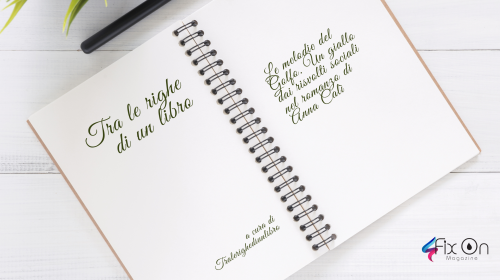 Tra le righe
di un libro
a cura di
Tralerighediunlibro
Le melodie del
Golfo. Un giallo
dai risvolti sociali
nel romanzo di
Anna Calì
Fix On
Magazine